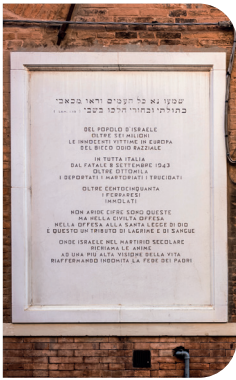 שמעו נא כל העמים וראו מכאבי
בתולתי ובחורי הלכו בשבי
DEL POPOLO D'ISRAELE
OLTRE SEI MILIONI
LE INNOCENTI VITTIME IN EUROPA
DEL BIECO ODIO RAZZIALE
IN TUTTA ITALIA
DAL FATALE 8 SETTEMBRE 1943
OLTRE OTTOMILA
I DEPORTATI I MARTORIATI I TRUCIDATI
OLTRE CENTOCINQUANTA
I FERRARESI
IMMOLATI
NON ARIDE CIFRE SONO QUESTE
MA NELLA CIVILTÀ OFFESA
NELLA OFFESA ALLA SANTA LEGGE DI DIO
È QUESTO UN TRIBUTO DI LAGRIME E DI SANGUE
ONDE ISRAELE NEL MARTIRIO SECOLARE
RICHIAMA LE ANIME
AD UNA PIÙ ALTA VISIONE DELLA VITA
RIAFFERMANDO INDOMITA LA FEDE DEI PADRI